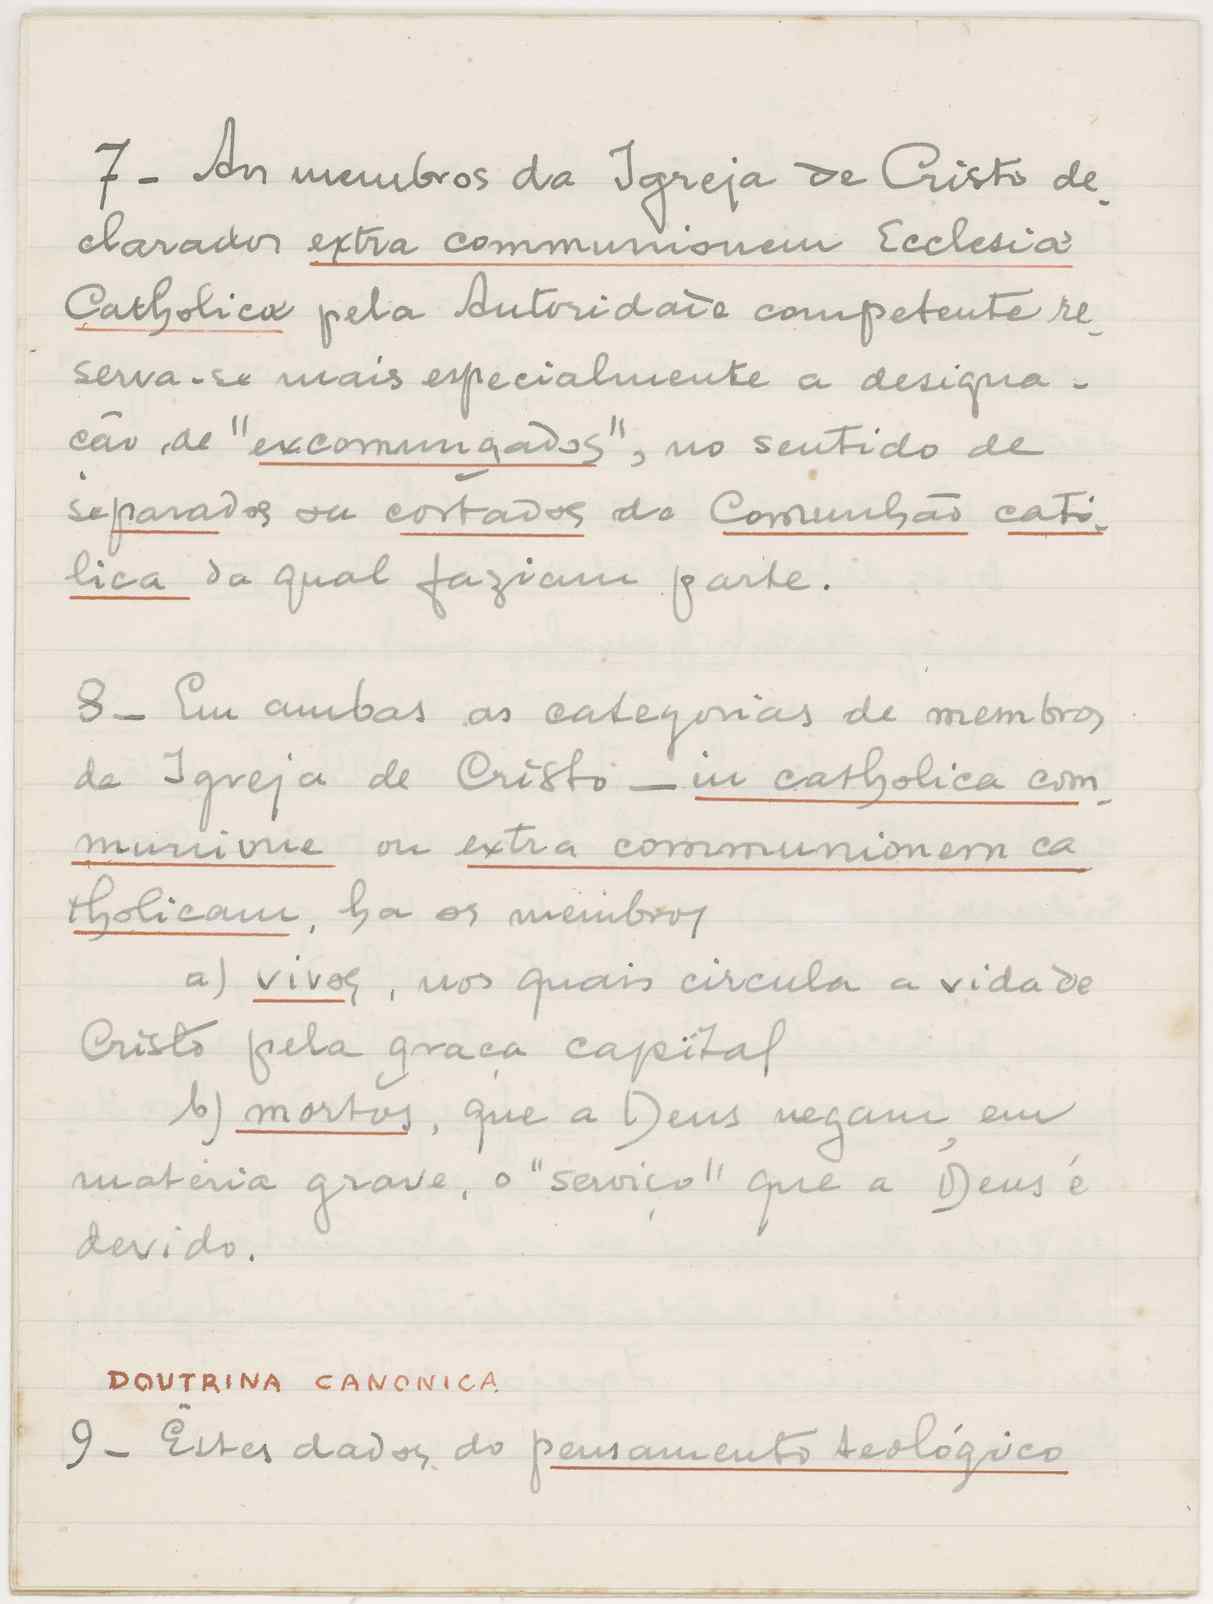 7- Aos membros da Igreja de Cristo de-
clarados extra communionem Ecclesiæ
Catholicæ pela Autoridade competente re-
serva-se mais especialmente a designa-
ção de "excomungados", no sentido de
separados ou cortados da Comunhão cató-
lica da qual faziam parte.
8- Em ambas as categorias de membros
da Igreja de Cristo - in catholica com-
munione ou extra communionem ca
tholicam, ha os membros
a) vivos, nos quais circula a vida de
Cristo pela graça capital
b) mortos, que a Deus negam, em
matéria grave, o "serviço" que a Deus é
devido.
DOUTRINA CANONICA
9- Êstes dados do pensamento teológico